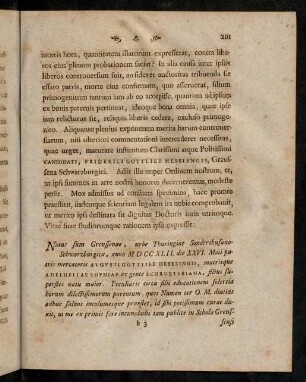 XIII
mortis hora, quantitatem illatorum expresserat, contra libe-
ros eius plenam probationem faciat? In alia causa inter ipsos
liberos controversum fuit, an sideret auctoritas tribuenda sit
effato patris, morte eius confirmato, quo asseruerat, filium
primogenitum tantum iam ab eo accepisse, quantum ad ipsum
ex bonis paternis pertineat, ideoque bona omnia, quae ipse
iam relicturus sit, reliquis liberis cedere, excluso primoge-
nito. Aliquanto plenius exponerem merita barum controver-
siarum, niti uberiori commentationi intercederet necessitas,
quae urget, maturare institutum Clarissimi atque Politissimi
CANDIDATI, FRIDERICI GOTTLIEB HESSLINGII, Greus-
sena Schwarzburgici. Adiit ille nuper Ordinem nostrum, et,
ut ipsi summos in arte nostra honores decerneremus, modeste
petiit. Mox admissus ad consueta specimina, haec promte
praestitit, iisdemque scientiam legalem ita nobis comprobavit,
ut merito ipsi destinata sit dignitas Doctoris iuris utriusque.
Vitae suae studiorumque rationem ipse expressit:
Natus sum Greussenae, urbe Thuringiae Sondershusano-
Schwarzburgica, anno MDCCXLII. die XXVI. Maii pa-
tris mercatoris AUGUSTI GOTTLIEB HESSLINGII, matrisque
ADELHEITAE SOPHIAE ex gente SCHROETERIANA, filius su-
perstes natu maior. Peculiaris circa sibi educationem suscepta
horum dilectissimorum parentum, quos Numen ter O. M. diutius
adhuc salvos incolumesque praestet, id sibi potissimum curae du-
xit, ut me ex primis fere incunabulis tam publice in Schola Greus-
b 3
sensi